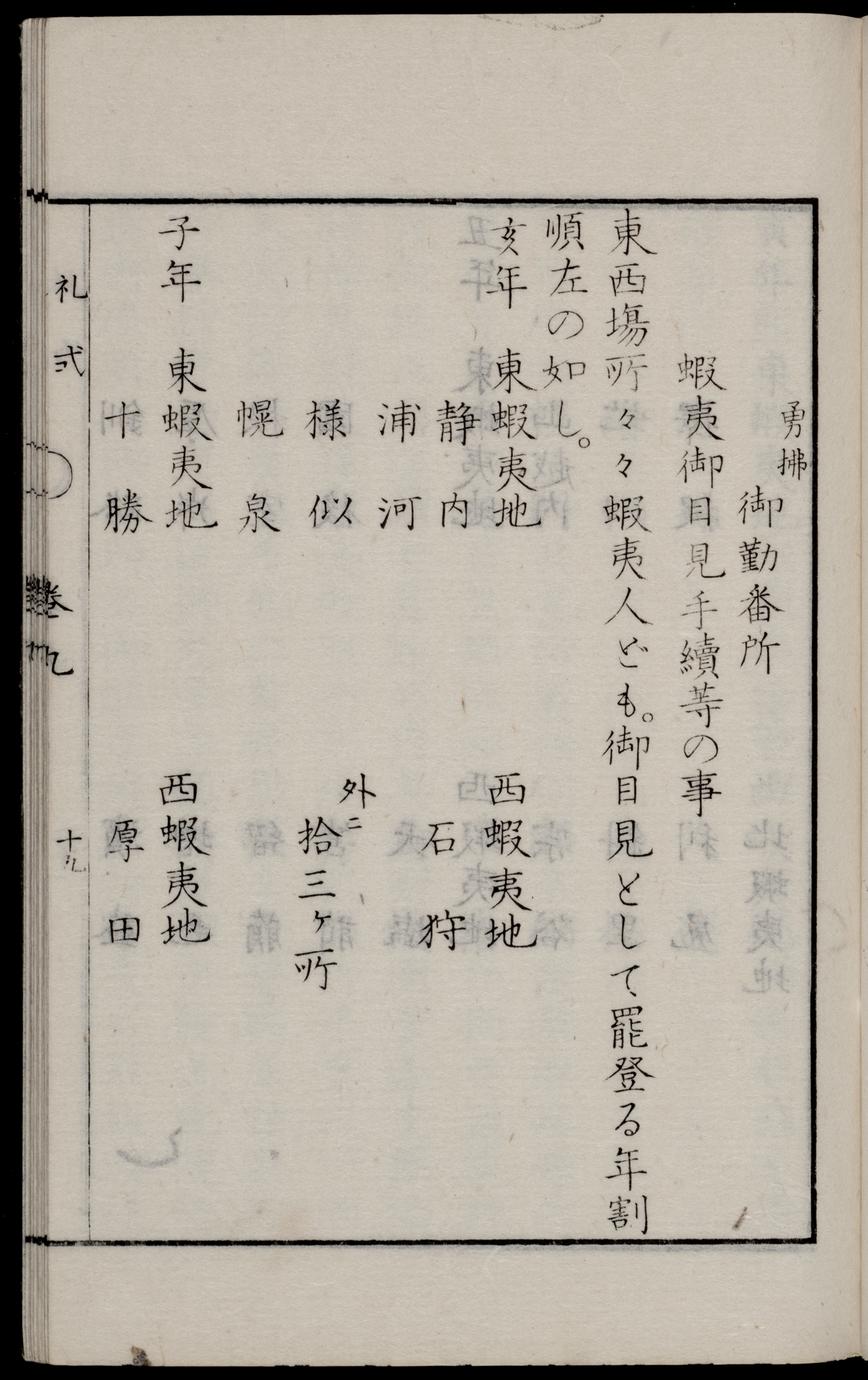 勇拂
御勤番所
蝦夷御目見手續等の事
東西場所々々蝦夷人ども。御目見として罷登る年割
順左の如し。
亥年　東蝦夷地　西蝦夷地
静内　石狩
浦河
様似　外ニ拾三ヶ所
幌泉
子年　東蝦夷地　西蝦夷地
十勝　厚田
礼式　卷九　十九